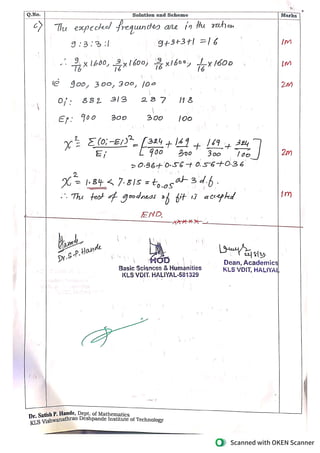 Q.No. Solution and Scheme Marks
c) The expected frequencies are in the ration
9:3:3:1 9+3+3+1=16 1M
∴ 9/16 x 1600, 3/16 x 1600, 3/16 x 1600, 1/16 x 1600 1M
900, 300, 300, 100 2M
Oi: 882 313 287 118
Ei: 900 300 300 100
χ² = Σ(Oi-Ei)²/Ei = [324/900 + 169/300 + 169/300 + 324/100] 2M
= 0.36+0.56+0.56+0.36
χ² = 1.84 < 7.815 = t0.05 at 3 d.f.
∴ The test of goodness of fit is accepted 1M
END.
Dr. S.P. Hande
HOD
Basic Sciences & Humanities
KLS VDIT, HALIYAL-581329
Dean, Academics
KLS VDIT, HALIYAL
Dr. Satish P. Hande, Dept. of Mathematics
KLS Vishwanathrao Deshpande Institute of Technology
Scanned with OKEN Scanner